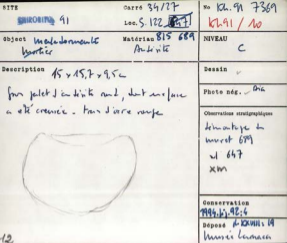 SITE
KHIROKITIA 91
Carré 34/27
Loc. S.122, 647
No Kh.91 7369
Kh.91 / 10
Object
mortier
Matériau 815 689
Andésite
NIVEAU
C
Description 15 x 15,7 x 9,5 cm
galet d'andésite rond, dont une face
a été creusée. d'ocre rouge
Dessin
Photo nég. Dia
Observations stratigraphiques
démontage du
muret 689
et 647
Conservation
Déposé
Musée Larnaca
12